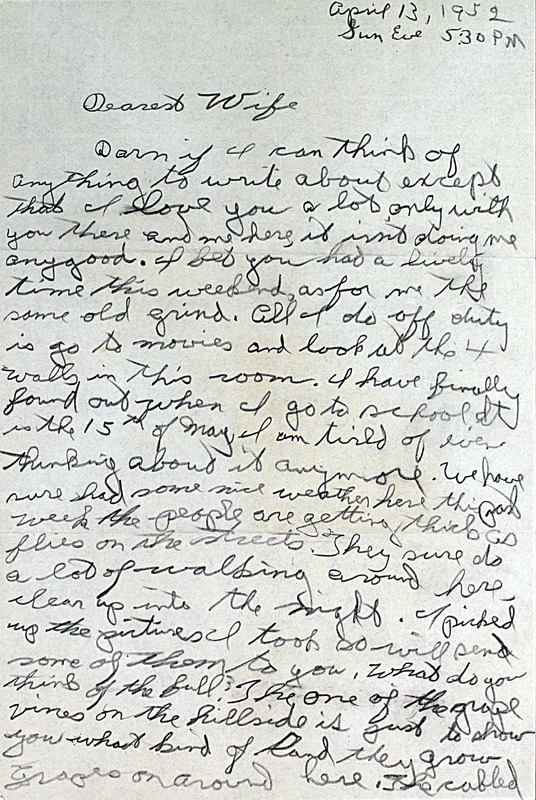 April 13, 1952
Sun Eve 5:30 PM
Dearest Wife
Darn if I can think of
anything to write about except
that I love you a lot, only with
you there and me here, it isn't doing me
anygood. I bet you had a lively
time this weekend, as for me the
same old grind. All I do off duty
is go to movies and look at the 4
walls in this room. I have finally
found out when I go to school it
is the 15th of May. I am tired of even
thinking about it anymore. We have
sure had some nice weather here this past
week the people are getting thick as
flies on the streets. They sure do
a lot of walking around here,
clear up into the night. I picked
up the pictures I took so will send
some of them to you. What do you
think of the bull? The one of the grape
vines on the hillside is just to show
you what kind of land they grow
grapes on around here. The cabled